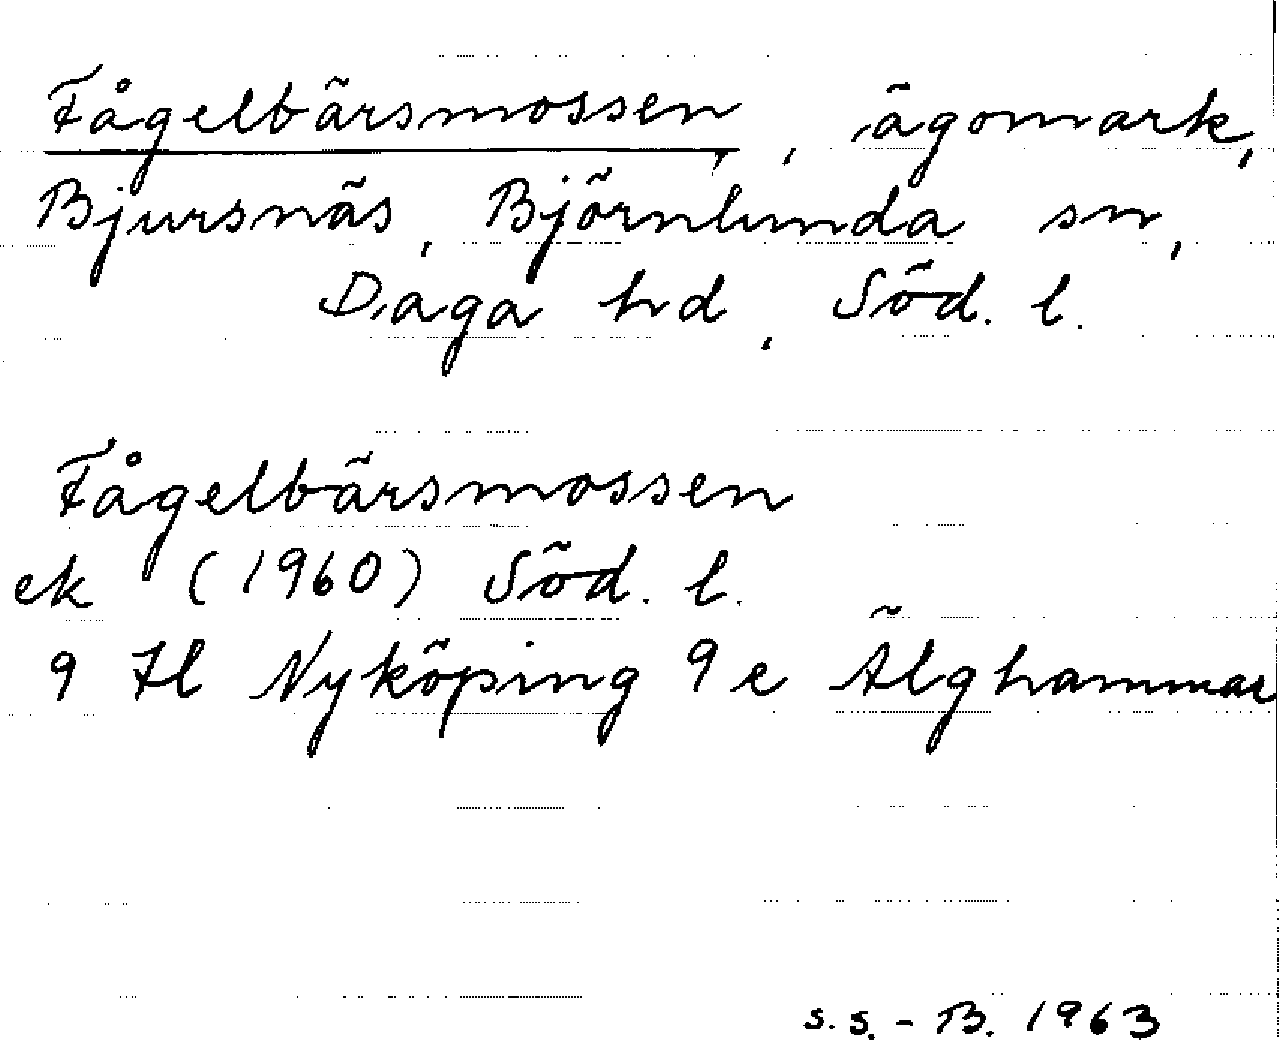 Fågelbärsmossen, ägomark,
Bjursnäs, Björnlunda sn,
Daga hd, Söd. l.
Fågelbärsmossen
ek (1960) Söd. l.
9 H Nyköping 9 e Älghammar
s.s. - B. 1963